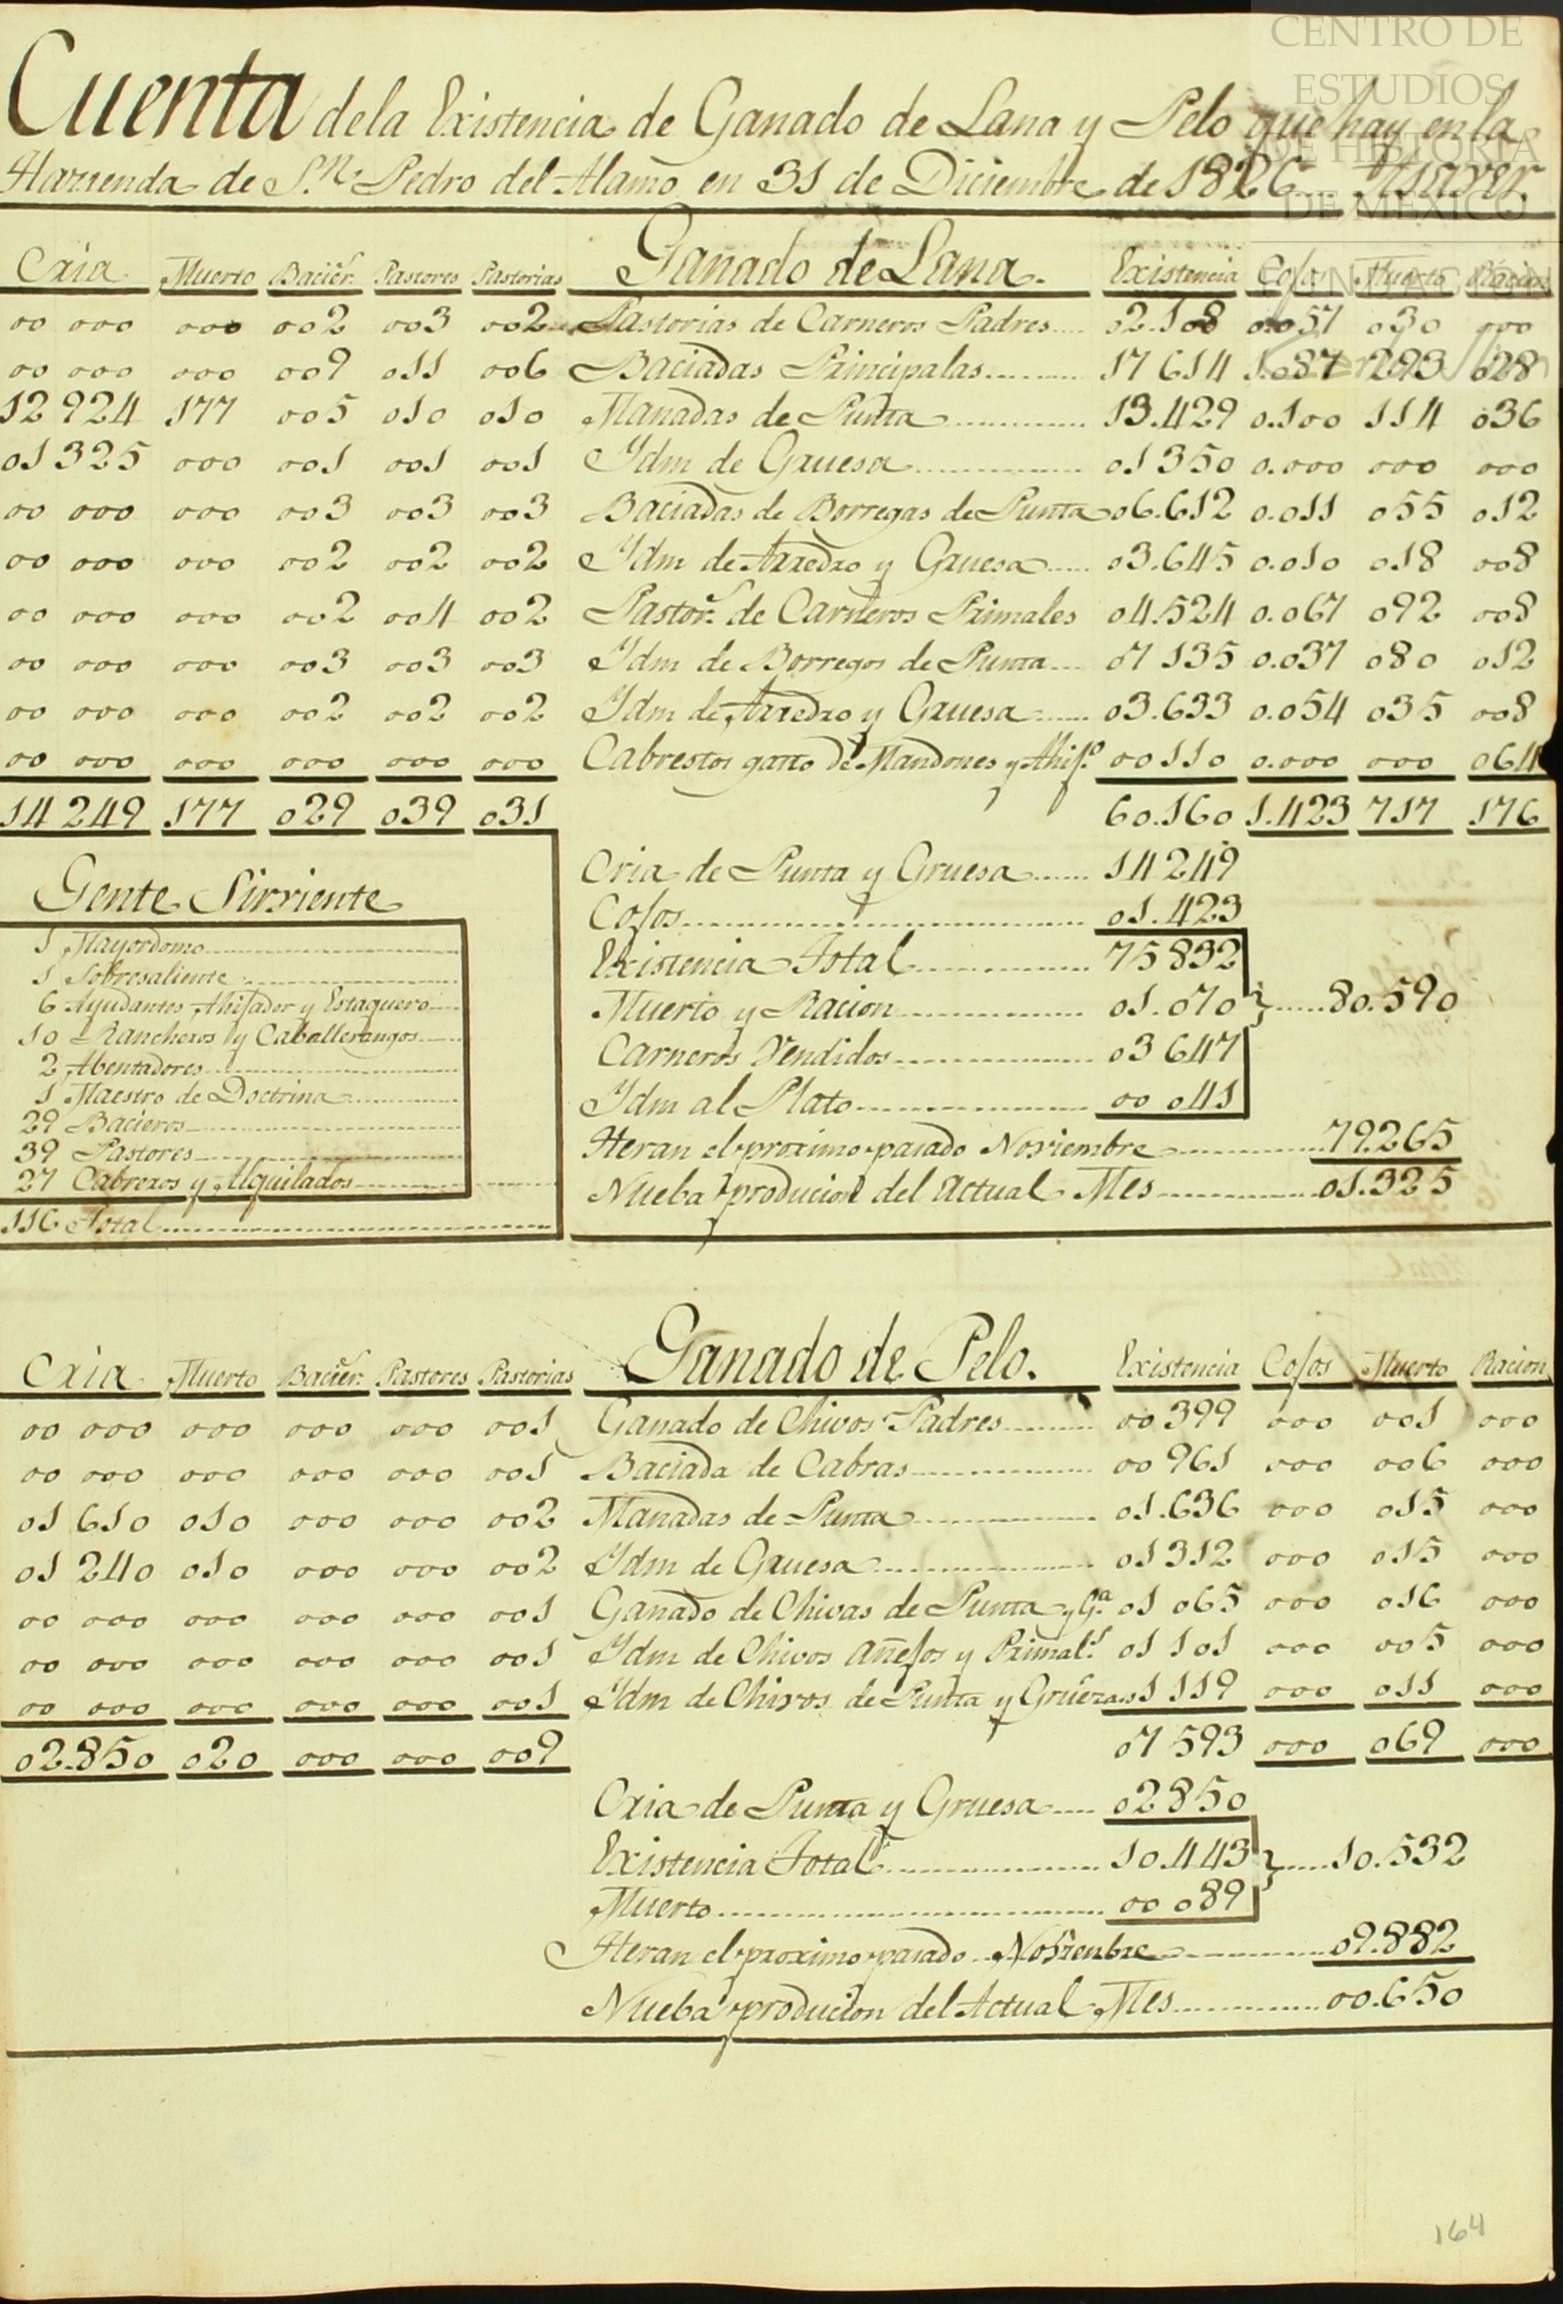 CENTRO DE
ESTUDIOS
DE HISTORIA
DE MEXICO
FUNDACION
Cuenta dela Existencia de Ganado de Lana y Pelo que hay en la
Hazienda de S.n Pedro del Alamo en 31 de Diciembre de 1826
Cria Muerto Bacier.s Pastores Pastorias Ganado de Lana. Existencia Cojos Muerto Racion
00 000 000 002 003 002 Pastorias de Carneros Padres 02.108 0.057 030 000
00 000 000 009 011 006 Baciadas Principalas 17 614 1.087 293 028
12 924 177 005 010 010 Manadas de Punta 13.429 0.100 114 036
01 325 000 001 001 001 Ydm de Gruesa 01 350 0.000 000 000
00 000 000 003 003 003 Baciadas de Borregas de Punta 06.612 0.011 055 012
00 000 000 002 002 002 Ydm de Arredro y Gruesa 03.645 0.010 018 008
00 000 000 002 004 002 Pastor.s de Carneros Primales 04.524 0.067 092 008
00 000 000 003 003 003 Ydm de Borregos de Punta 07 135 0.037 080 012
00 000 000 002 002 002 Ydm de Arredro y Gruesa 03.633 0.054 035 008
00 000 000 000 000 000 Cabrestos garro de Mandones y Ahij.o 00 110 0.000 000 064
14 249 177 029 039 031 60.160 1.423 717 176
Gente Sirviente
1 Mayordomo
1 Sobresaliente
6 Ayudantes Ahijador y Estaquero
10 Rancheros y Caballerangos
2 Abentadores
1 Maestro de Doctrina
29 Bacieros
39 Pastores
27 Cabreros y Alquilados
116 Total
Cria de Punta y Gruesa 14 249
Cojos 01.423
Existencia Total 75 832
Muerto y Racion 01.070 80.590
Carneros Vendidos 03 647
Ydm al Plato 00 041
Heran el proximo pasado Noviembre 79.265
Nueba producion del actual Mes 01.325
Cria Muerto Bacier.s Pastores Pastorias Ganado de Pelo. Existencia Cojos Muerto Racion
00 000 000 000 000 001 Ganado de Chivos Padres 00 399 000 001 000
00 000 000 000 000 001 Baciada de Cabras 00 961 000 006 000
01 610 010 000 000 002 Manadas de Punta 01.636 000 015 000
01 240 010 000 000 002 Ydm de Gruesa 01 312 000 015 000
00 000 000 000 000 001 Ganado de Chivas de Punta y G.a 01 065 000 016 000
00 000 000 000 000 001 Ydm de Chivos Añejos y Primal.s 01 101 000 005 000
00 000 000 000 000 001 Ydm de Chivos de Punta y Grueza 01 119 000 011 000
02.850 020 000 000 009 07 593 000 069 000
Cria de Punta y Gruesa 02850
Existencia Total 10.443 10.532
Muerto 00 089
Heran el proximo pasado Noviembre 09.882
Nueba producion del Actual Mes 00.650
164